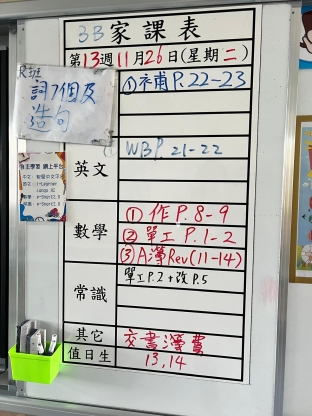 3B家課表
第13週11月26日(星期二)
①補P.22-23
詞7個及
造句
WBP.21-22
英文
數學
①作P.8-9
②單工P.1-2
③A簿Rev(11-14)
常識
單工P.2+改P.5
其它
交書簿費
值日生
13,14